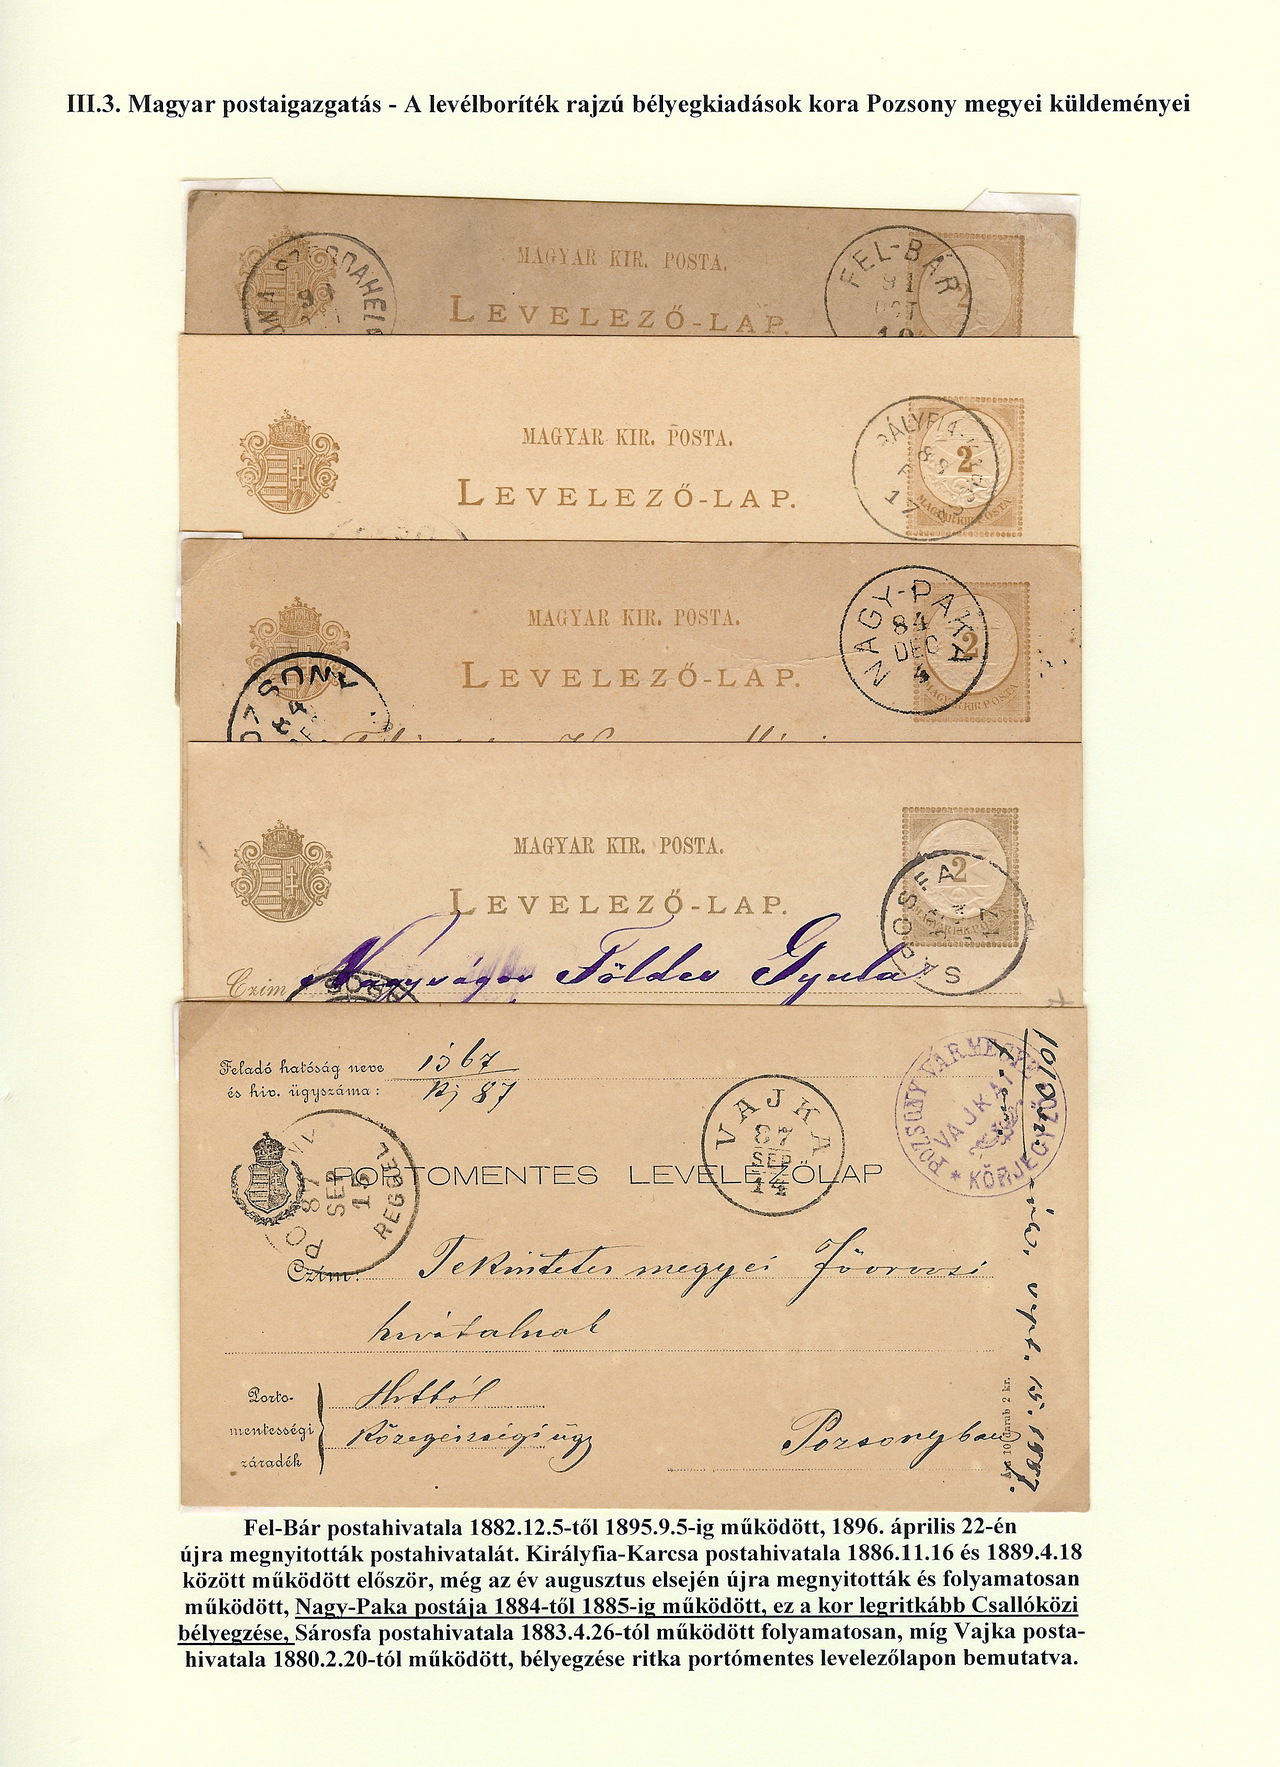 III.3. Magyar postaigazgatás - A levélboríték rajzú bélyegkiadások kora Pozsony megyei küldeményei
MAGYAR KIR. POSTA.
LEVELEZŐ-LAP.
FEL-BÁR
91
OCT
MAGYAR KIR. POSTA.
LEVELEZŐ-LAP.
2
MAGYAR KIR. POSTA
17
MAGYAR KIR. POSTA.
LEVELEZŐ-LAP.
NAGY-PAKA
84
DEC
2
MAGYAR KIR POSTA
MAGYAR KIR. POSTA.
LEVELEZŐ-LAP.
2
SÁROSFA
17
Czim Nagyságos Földes Gyula
Feladó hatóság neve 1367
és hiv. ügyszáma: kj 87
VAJKA
87
SEP
14
POZSONY VÁRMEGYE
VAJKAI
* KÖRJEGYZŐ
PORTOMENTES LEVELEZŐLAP
POZSONY
87
SEP
15
REGGEL
Czím: Tekintetes megyei Főorvosi
hivatalnak
Porto-
mentességi
záradék
Hivtból
Közegészségi ügy
Pozsonyban
Ára 10 darab 2 kr.
Fel-Bár postahivatala 1882.12.5-től 1895.9.5-ig működött, 1896. április 22-én
újra megnyitották postahivatalát. Királyfia-Karcsa postahivatala 1886.11.16 és 1889.4.18
között működött először, még az év augusztus elsején újra megnyitották és folyamatosan
működött, Nagy-Paka postája 1884-től 1885-ig működött, ez a kor legritkább Csallóközi
bélyegzése, Sárosfa postahivatala 1883.4.26-tól működött folyamatosan, míg Vajka posta-
hivatala 1880.2.20-tól működött, bélyegzése ritka portómentes levelezőlapon bemutatva.